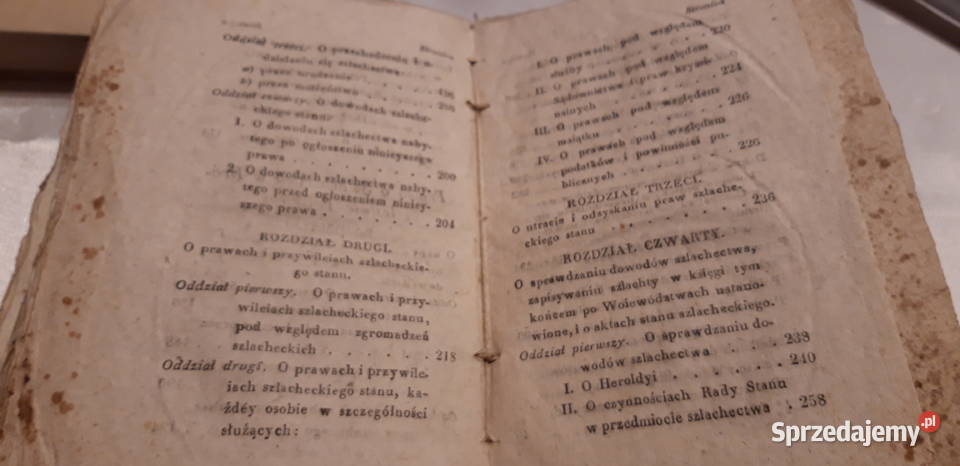 Stronica
Oddział trzeci. O przechodzeniu i u-
dzielaniu się szlachectwa
a) przez urodzenie
b) przez małżeństwo . . 198
Oddział czwarty. O dowodach szlache-
ckiego stanu:
1. O dowodach szlachectwa naby-
tego po ogłoszeniu ninieyszego
prawa . . . . . . . 200
2. O dowodach szlachectwa naby-
tego przed ogłoszeniem niniey-
szego prawa . . . . . . 204
ROZDZIAŁ DRUGI.
O prawach i przywileiach szlacheckie-
go stanu.
Oddział pierwszy. O prawach i przy-
wileiach szlacheckiego stanu,
pod względem zgromadzeń
szlacheckich . . . . . . 218
Oddział drugi. O prawach i przywile-
iach szlacheckiego stanu, ka-
żdéy osobie w szczególności
służących:
Stronica
I. O prawach pod względem
służby . . . . . . 220
II. O prawach pod względem
Sądownictwa i praw krymi-
nalnych . . . . . . 224
III. O prawach pod względem
maiątku . . . . . . 226
IV. O prawach pod względem
podatków i powinności pu-
blicznych . . . . . . 226
ROZDZIAŁ TRZECI.
O utracie i odzyskaniu praw szlache-
ckiego stanu . . . . . . 236
ROZDZIAŁ CZWARTY.
O sprawdzaniu dowodów szlachectwa,
zapisywaniu szlachty w księgi tym
końcem po Woiewództwach ustano-
wione, i o aktach stanu szlacheckiego.
Oddział pierwszy. O sprawdzaniu do-
wodów szlachectwa . . . 238
I. O Heroldyi . . . . . . 240
II. O czynnościach Rady Stanu
w przedmiocie szlachectwa . 258
Sprzedajemy.pl